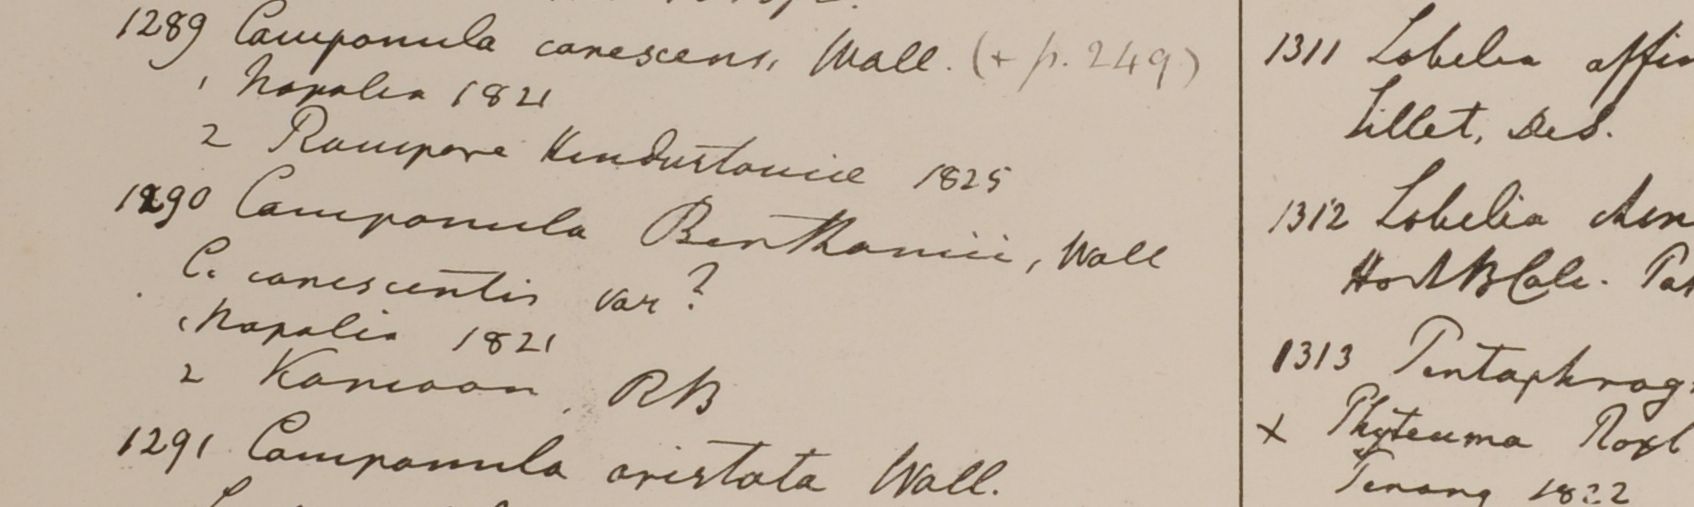 1289 Campanula canescens, Wall. (+ p. 249)
1 Napalia 1821
2 Rampore Hindustaniae 1825
1290 Campanula Benthamii, Wall
C. canescentis var?
1 Napalia 1821
2 Kamaon, RB
1291 Campanula aristata Wall.
1311 Lobelia affin
Sillet, Des.
1312 Lobelia
Hort B Calc.
1313 Pentaphrag
x Phyteuma Roxb
Penang 1822